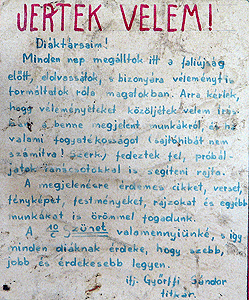 JERTEK VELEM!
Diáktársaim!
Minden nap megálltok itt a faliújság
előtt, elolvassátok, s bizonyára véleményt is
formáltatok róla magatokban. Arra kérlek,
hogy véleményeteket közöljétek velem írás-
ban a benne megjelent munkákról, és ha
valami fogyatékosságot (sajtóhibát nem
számítva! Szerk.) fedeztek fel, próbál-
játok tanácsotokkal is segíteni rajta.
A megjelenésre érdemes cikket, verset,
fényképet, festményeket, rajzokat és egyéb
munkákat is örömmel fogadunk.
A 10 szünet valamennyiünké, s így
minden diáknak érdeke, hogy szebb,
jobb és érdekesebb legyen.
ifj. Győrffi Sándor
titkár